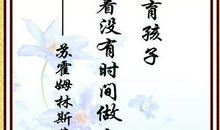 育孩子
看没有时间做
——苏霍姆林斯